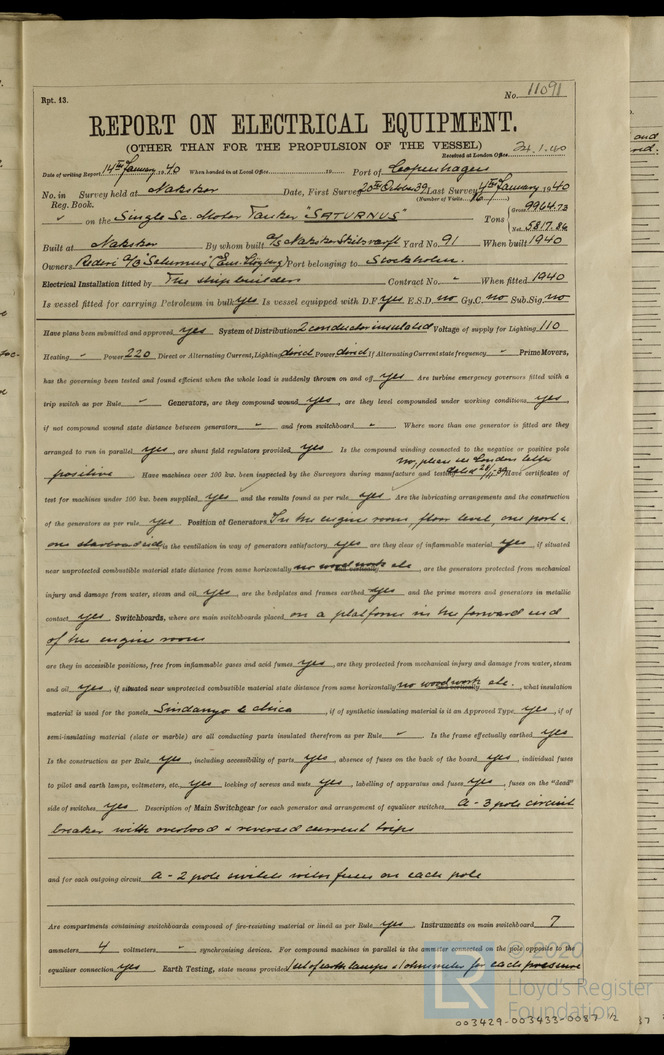 Rpt. 13.
No. 11091
REPORT ON ELECTRICAL EQUIPMENT.
(OTHER THAN FOR THE PROPULSION OF THE VESSEL)
Received at London Office 24.1.40
Date of writing Report 14TH January 1940 When handed in at Local Office 19 Port of Copenhagen
No. in Survey held at Nakskov Date, First Survey 20th October 39, Last Survey 4TH January 1940
Reg. Book. (Number of Visits 16)
on the Single Sc. Motor Tanker "SATURNUS" Tons { Gross 9964.73
Net 5817.86
Built at Nakskov By whom built A/S Nakskov Skibsværft Yard No. 91 When built 1940
Owners Rederi A/B "Saturnus" (Em. Högberg) Port belonging to Stockholm.
Electrical Installation fitted by The shipbuilders Contract No. " When fitted 1940
Is vessel fitted for carrying Petroleum in bulk yes Is vessel equipped with D.F. yes E.S.D. no Gy.C. no Sub.Sig. no
Have plans been submitted and approved yes System of Distribution 2 conductor insulated Voltage of supply for Lighting 110
Heating " Power 220 Direct or Alternating Current, Lighting direct Power direct If Alternating Current state frequency " Prime Movers,
has the governing been tested and found efficient when the whole load is suddenly thrown on and off yes Are turbine emergency governors fitted with a
trip switch as per Rule " Generators, are they compound wound yes, are they level compounded under working conditions yes,
if not compound wound state distance between generators " and from switchboard " Where more than one generator is fitted are they
arranged to run in parallel yes, are shunt field regulators provided yes Is the compound winding connected to the negative or positive pole
no, please see London letter
positive Have machines over 100 kw. been inspected by the Surveyors during manufacture and tested dated Have certificates of
test for machines under 100 kw. been supplied yes and the results found as per rule yes Are the lubricating arrangements and the construction
of the generators as per rule yes Position of Generators In the engine room, floor level, one port &
one starboard side is the ventilation in way of generators satisfactory yes are they clear of inflammable material yes, if situated
near unprotected combustible material state distance from same horizontally no wood work etc and vertically, are the generators protected from mechanical
injury and damage from water, steam and oil yes, are the bedplates and frames earthed yes and the prime movers and generators in metallic
contact yes Switchboards, where are main switchboards placed on a platform in the forward end
of the engine room
are they in accessible positions, free from inflammable gases and acid fumes yes, are they protected from mechanical injury and damage from water, steam
and oil yes, if situated near unprotected combustible material state distance from same horizontally no wood work etc. and vertically, what insulation
material is used for the panels Sindanyo & china, if of synthetic insulating material is it an Approved Type yes, if of
semi-insulating material (slate or marble) are all conducting parts insulated therefrom as per Rule " Is the frame effectually earthed yes
Is the construction as per Rule yes, including accessibility of parts yes, absence of fuses on the back of the board yes, individual fuses
to pilot and earth lamps, voltmeters, etc. yes locking of screws and nuts yes, labelling of apparatus and fuses yes, fuses on the "dead"
side of switches yes Description of Main Switchgear for each generator and arrangement of equaliser switches A - 3 pole circuit
breaker with overload & reversed current trips
and for each outgoing circuit A - 2 pole switch with fuses on each pole
Are compartments containing switchboards composed of fire-resisting material or lined as per Rule yes. Instruments on main switchboard 7
ammeters 4 voltmeters " synchronising devices. For compound machines in parallel is the ammeter connected on the pole opposite to the
equaliser connection yes Earth Testing, state means provided 1 set of earth lamps & 1 ohmmeter for each pressure
© 2020
LR
Lloyd's Register
Foundation
003429-003433-0087 1/2